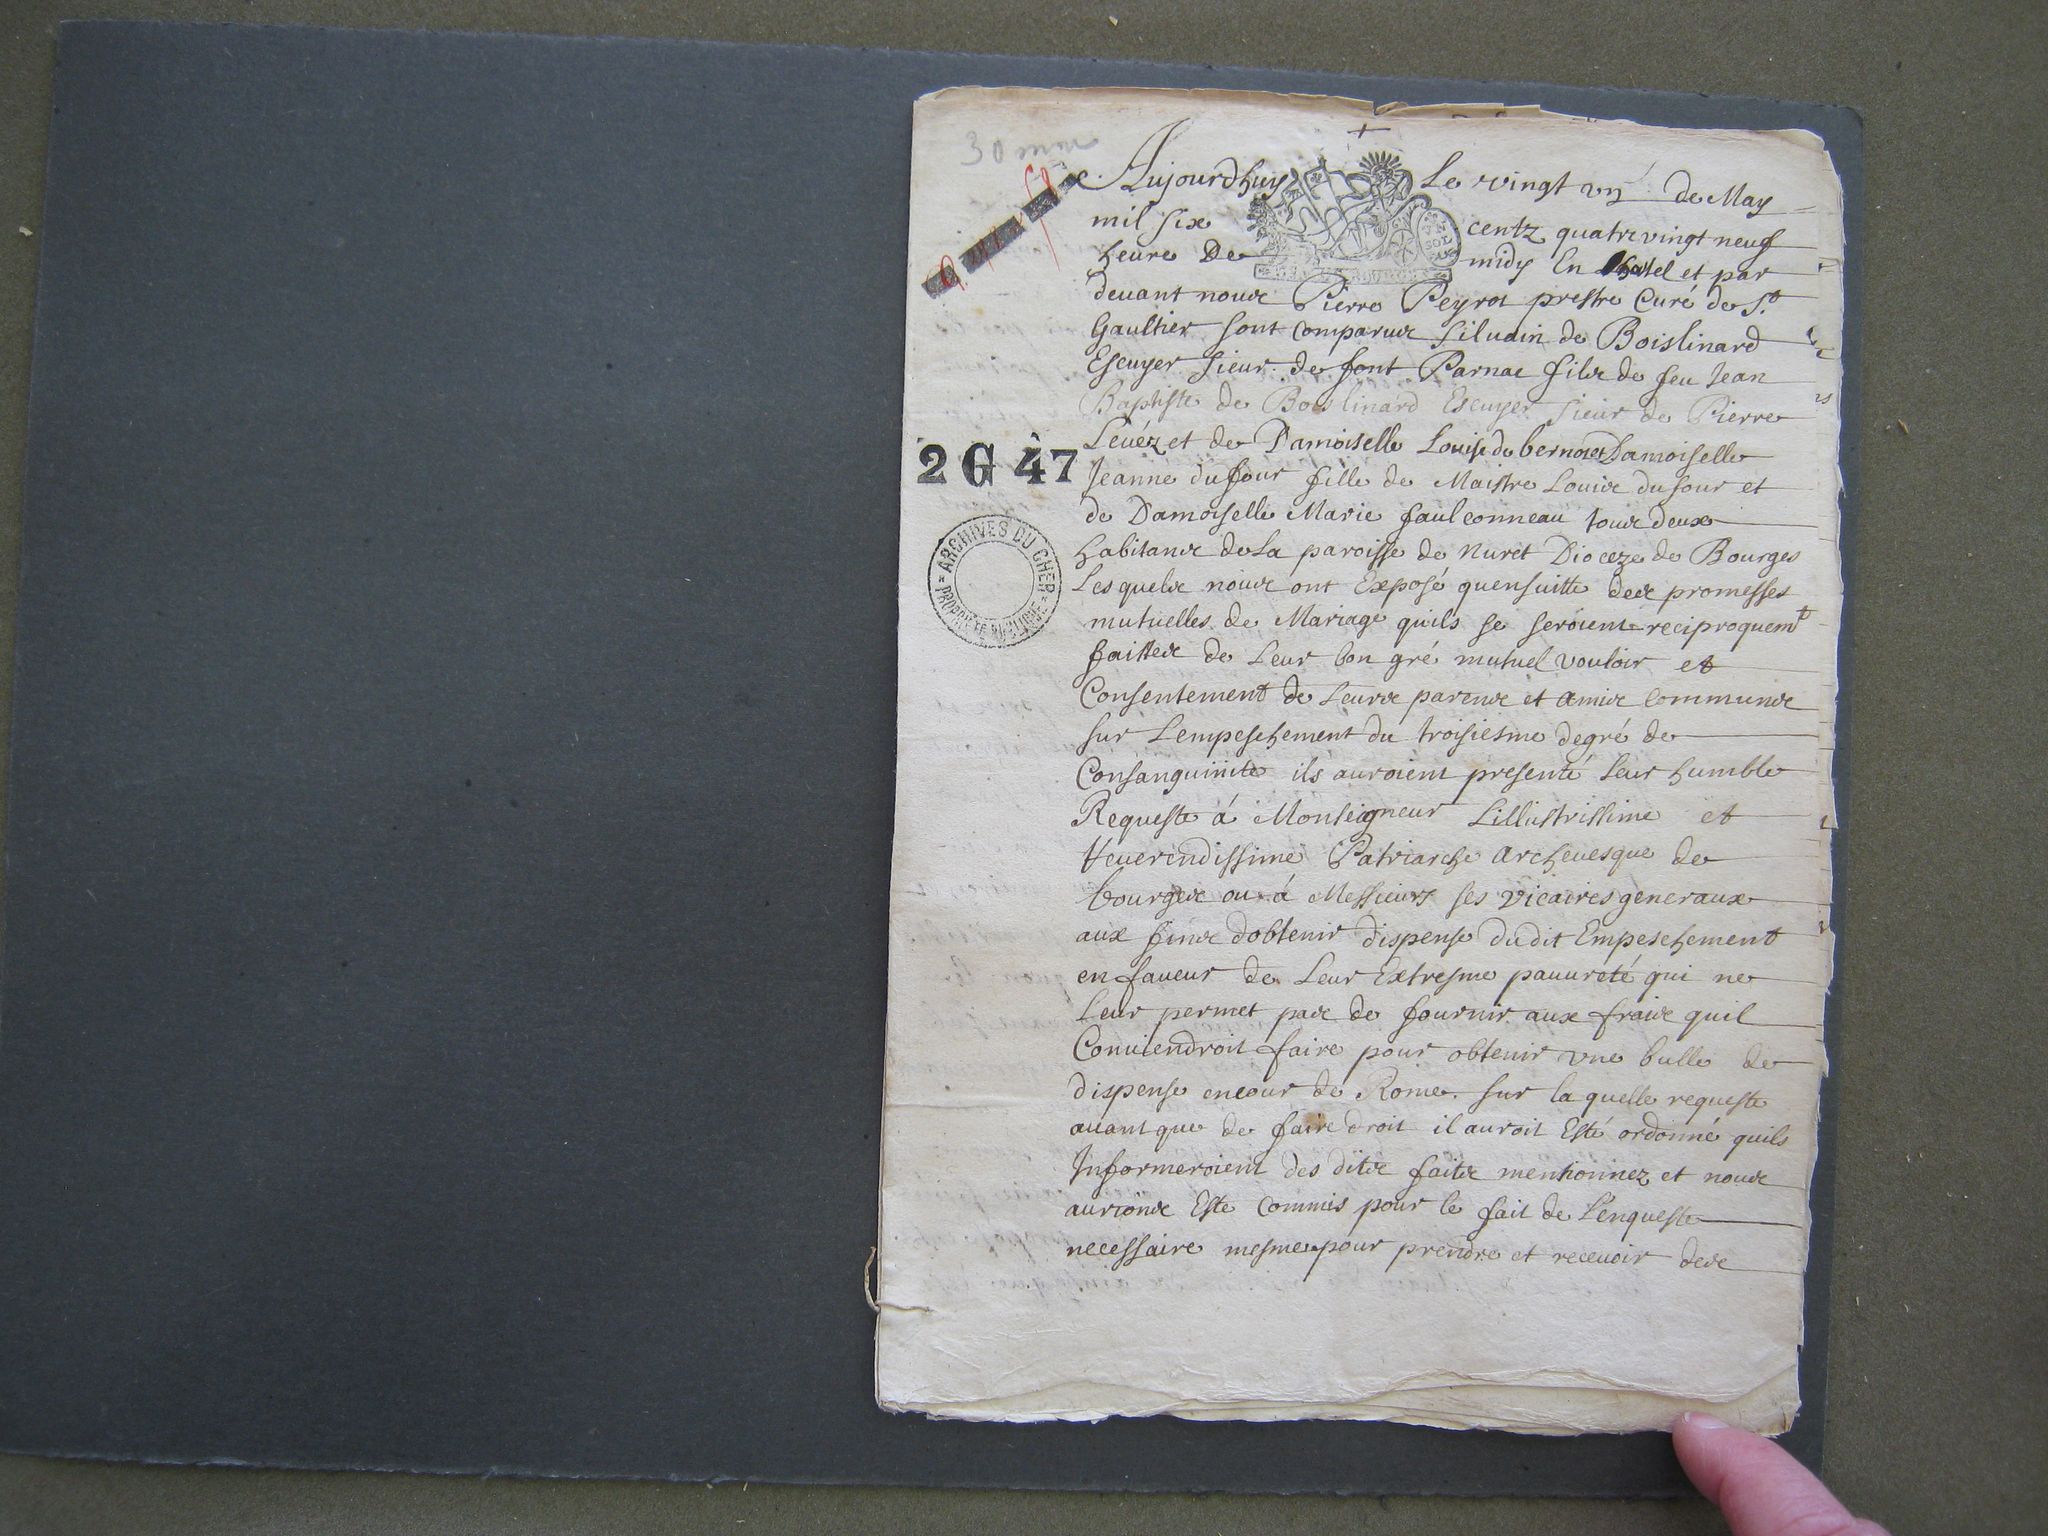 30 mine
+
Aujourdhuy Le vingt un de May
mil six centz quatre vingt neuf
heure De midy En lhostel et par
devant nous Pierre Peyrot prestre Curé de St
Gaultier sont comparus Silvain de Boislinard
Escuyer sieur de font Parnac fils de feu Jean
Baptiste de Boislinard Escuyer sieur de Pierre
Levéz et de Damoiselle Louise de bernot et Damoiselle
Jeanne dufour fille de Maistre Louis dufour et
de Damoiselle Marie faulconneau tous deux
habitans de La paroisse de Nuret Dioceze de Bourges
Lesquels nous ont Exposé quensuitte des promesses
mutuelles de Mariage quils se seroient reciproquemt
faittes de Leur bon gré mutuel vouloir et
Consentement de Leurs parens et amis Communs
sur Lempeschement du troisiesme degré de
Consanguinite ils auroient presenté Leur humble
Requeste á Monseigneur Lillustrissime et
Reverendissime Patriarche Archevesque de
bourges ou á Messieurs ses vicaires generaux
aux fins dobtenir dispense dudit Empeschement
en faveur de Leur Extresme pauvreté qui ne
Leur permet pas de fournir aux frais quil
Conviendroit faire pour obtenir une bulle de
dispense en cour de Rome. sur la quelle requeste
avant que de faire droit il auroit Esté ordonné quils
Informeroient des dits faits mentionnez et nous
aurions Este Commis pour le fait de Lenqueste
necessaire mesme pour prendre et recevoir des
2 G 47
ARCHIVES DU CHER
PROPRIÉTÉ PUBLIQUE